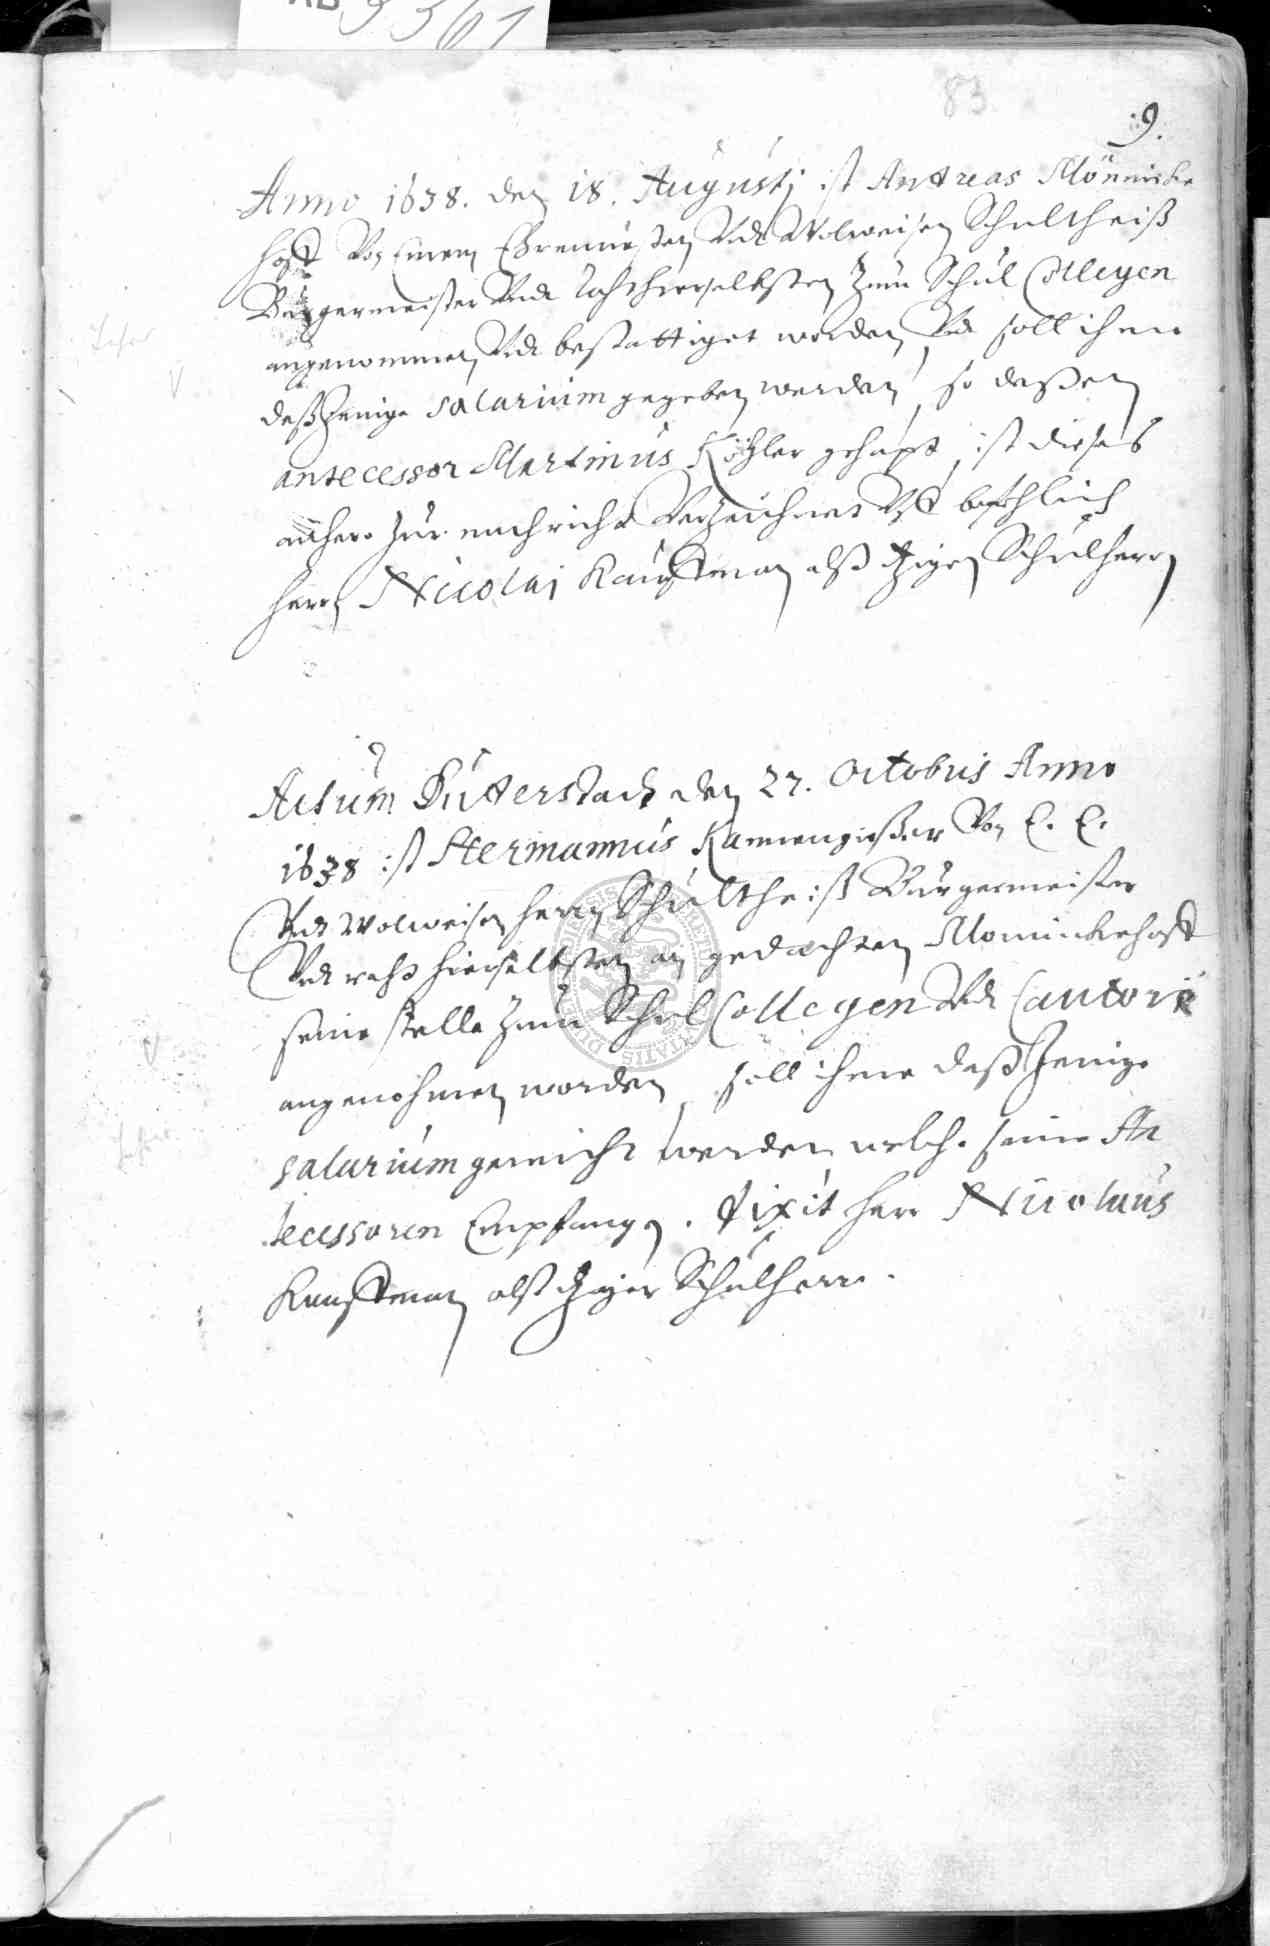 83
9.
Anno 1638. den 18. Augusti ist Andreas Mönnicke
hoff von Einem Ehrenvesten Vndt Wolweisen Schultheiß
Bürgermeister Vndt Raht hierselbsten zum Schul Collegen
angenommen Vndt bestattiget worden, Vndt soll ihme
daßJenige salarium gegeben werden, so deßen
antecessor Martinus Köhler gehapt, ist dieses
anhero zur nachricht Verzeichnet Vff bevehlich
herrn Nicolai Kauffman alß itzigen Schulherrn
Actum Duderstadt den 27. Octobris Anno
1638 ist Hermannus Kannengießer Von E. E.
Vndt Wolweisen herrn Schultheiß Bürgermeister
Vndt raht hierselbsten an gedachten Monnickehoff
seine stelle zum Schul Collegen Vndt Cantorn
angenohmen worden, soll ihme daßJenige
salarium gereicht werden welche seine An
tecessoren Empfangen. dixit herr Nicolaus
Kauffman alß itziger Schulherr.